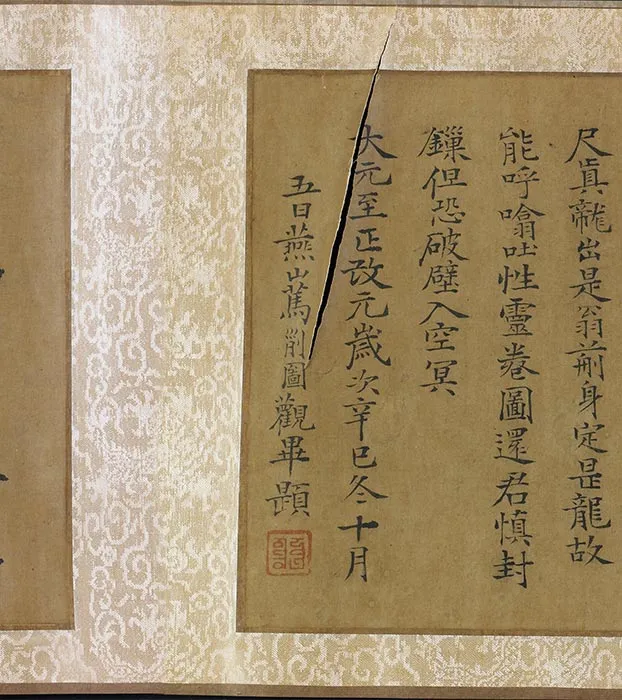 尺眞龍出是翁前身定是龍故
能呼噏吐性靈卷圖還君愼封
鏁但恐破壁入空冥
大元至正改元歲次辛巳冬十月
五日燕山篤圖觀畢題